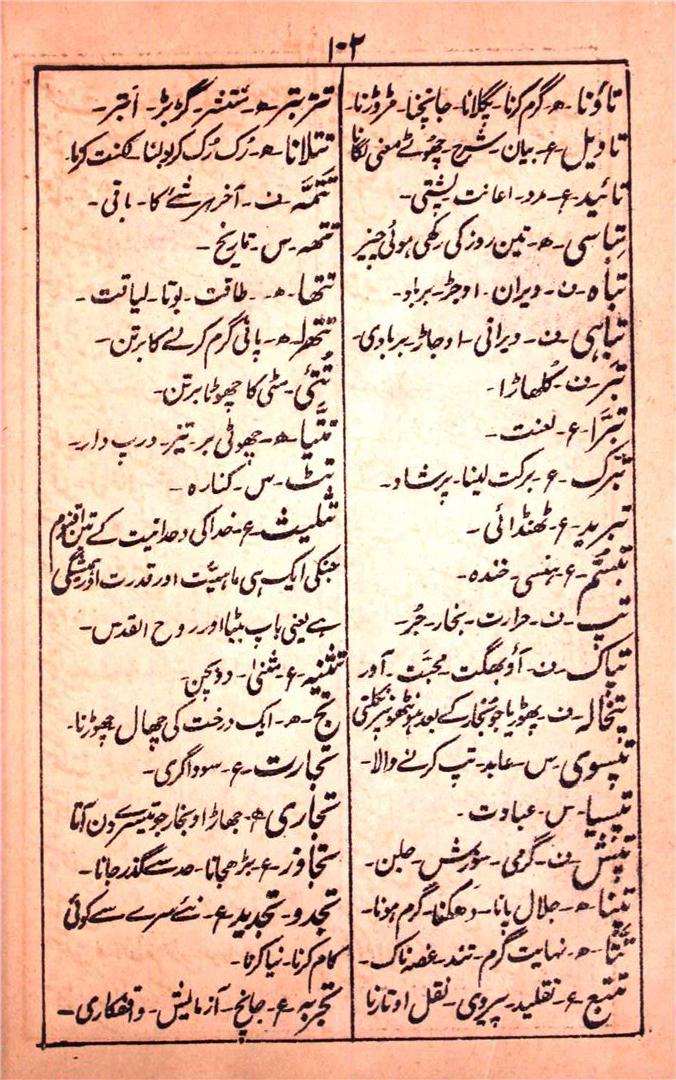 ۱۰۲
تاؤنا۔ ھ۔ گرم کرنا۔ پگلانا۔ جانچنا۔ مڑوڑنا۔
تاویل۔ ع۔ بیان۔ شرح۔ جھوٹے معنی لگانا
تائید۔ ع۔ مدد۔ اعانت۔ پشتی۔
تباسی۔ ھ۔ تین روز کی رکھی ہوئی چیز
تباہ۔ ف۔ ویران۔ اوجڑ۔ برباد۔
تباہی۔ ف۔ ویرانی۔ اوجاڑ۔ بربادی۔
تبر۔ ف۔ کُلھاڑا۔
تبرّا۔ ع۔ لعنت۔
تبرّک۔ ع۔ برکت لینا۔ پرشاد۔
تبرید۔ ع۔ ٹھنڈائی۔
تبسّم۔ ع۔ ہنسی۔ خندہ۔
تپ۔ ف۔ حرارت۔ بخار۔ جُر۔
تپاک۔ ف۔ آؤبھگت۔ محبّت۔ آور
تپخالہ۔ ف۔ پھوڑیا جو بخار کے بعد ہونٹھوں پر نکلتی
تپسوی۔ س۔ عابد۔ تپ کرنے والا۔
تپسیا۔ س۔ عبادت۔
تپش۔ ف۔ گرمی۔ سوزش۔ جلن۔
تپنا۔ ھ۔ جلال پانا۔ دھکنا۔ گرم ہونا۔
تتّا۔ ھ۔ نہایت گرم۔ تند۔ غصہ ناک۔
تتبع۔ ع۔ تقلید۔ پیروی۔ نقل اوتارنا
تتر بتر۔ ھ۔ منتشر۔ گڑبڑ۔ ابتر۔
تتلانا۔ ھ۔ رُک رُک کر بولنا۔ لکنت کرنا۔
تتمّہ۔ ف۔ آخر ہر شے کا۔ باقی۔
تتھہ۔ س۔ تاریخ۔
تتھا۔ ھ۔ طاقت۔ بوتا۔ لیاقت۔
تتھرا۔ ھ۔ پانی گرم کرنے کا برتن۔
تُتئی۔ مٹی کا چھوٹا برتن۔
تتیّا۔ ھ۔ چھوٹی بر۔ تیز۔ درپ دار۔
تٹ۔ س۔ کنارہ۔
تثلیث۔ ع۔ خدا کی وحدانیت کے تین اقنوم
جنکی ایک ہی ماہیّت اور قدرت اور ہمیشگی
ہے یعنی باپ بیٹا اور روح القدس۔
تثنیہ۔ ع۔ مثنیٰ۔ دوبچن۔
تج۔ ھ۔ ایک درخت کی چھال۔ چھوڑنا۔
تجارت۔ ع۔ سوداگری۔
تجاری۔ ھ۔ جھاڑا او بخار جو تیسرے دن آتا
تجاوز۔ ع۔ بڑھجانا۔ حد سے گذر جانا۔
تجدو۔ تجدید۔ ع۔ نئے سرے سے کوئی
کام کرنا۔ نیا کرنا۔
تجربہ۔ ع۔ جانچ۔ آزمایش۔ واقفکاری۔